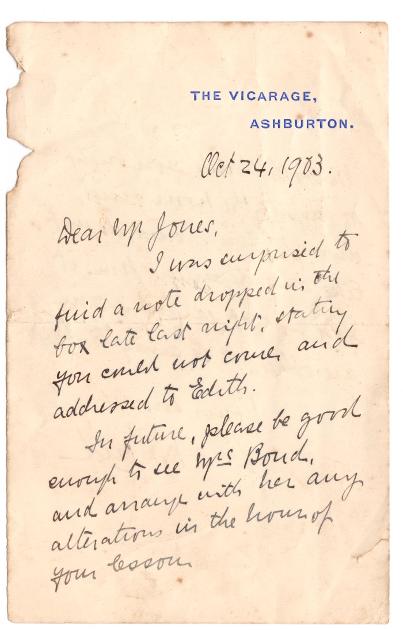 THE VICARAGE,
ASHBURTON.
Oct 24, 1903.
Dear Mr Jones,
I was surprised to
find a note dropped in the
box late last night, stating
you could not come, and
addressed to Edith.
In future, please be good
enough to see Mrs Bond,
and arrange with her any
alterations in the hour of
your lesson